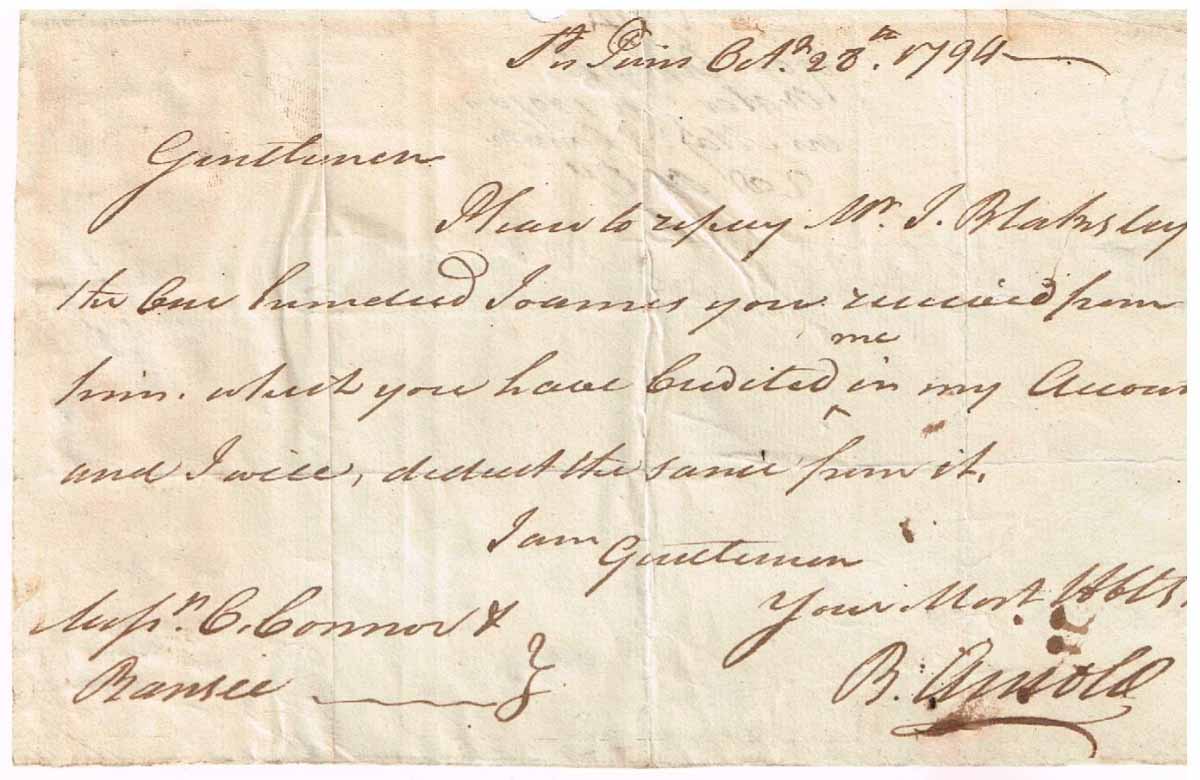 St Peirs Octr. 28th. 1794
Gentlemen
Please to repay Mr. J. Blakesley
the One hundred Joannes you received from
him. which you have Credited me in my Accoun
and I will, deduct the same from it.
I am Gentlemen
Your Most Hble S.
B. Arnold
Messrs. C. Connor &
Bansee